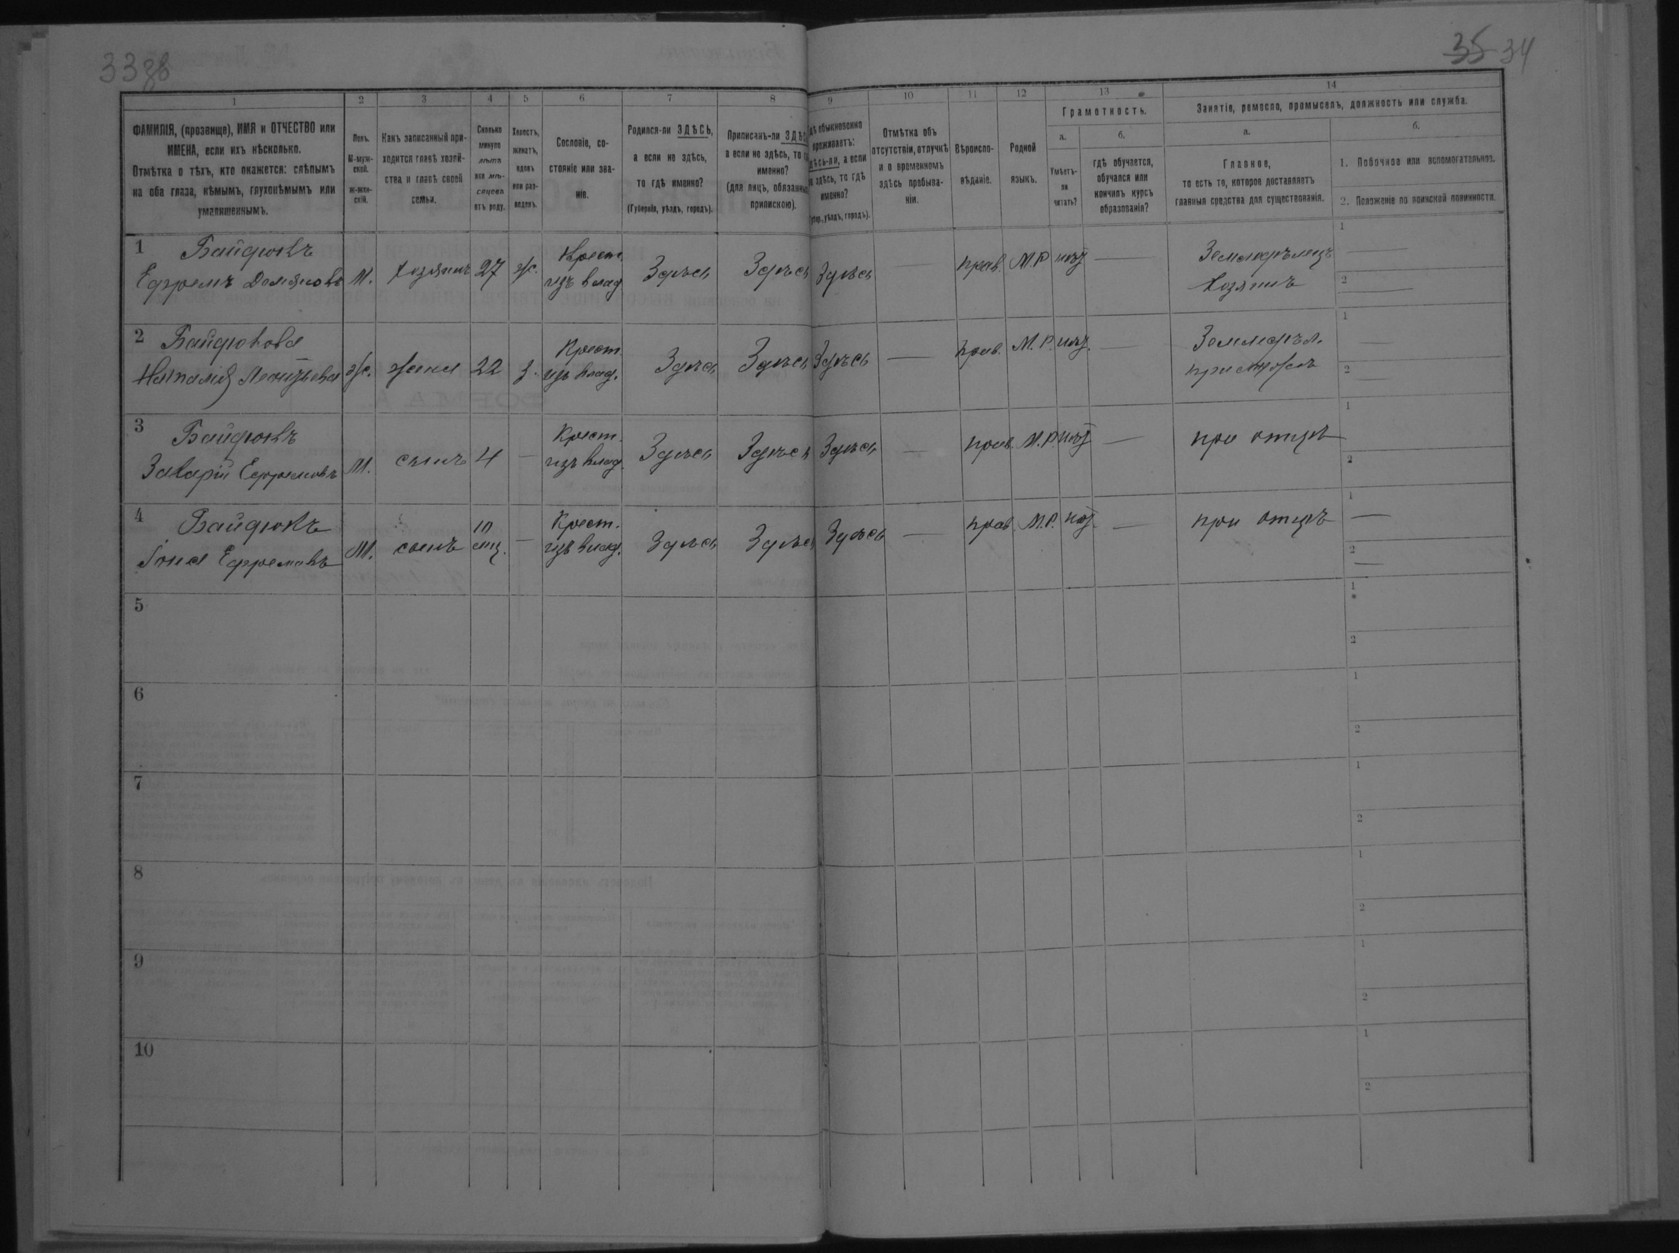 33об
35 34
1 2 3 4 5 6 7 8 9 10 11 12 13 14
ФАМИЛІЯ, (прозвище), ИМЯ и ОТЧЕСТВО или
ИМЕНА, если ихъ нѣсколько.
Отмѣтка о тѣхъ, кто окажется: слѣпымъ
на оба глаза, нѣмымъ, глухонѣмымъ или
умалишеннымъ.
Полъ.
М-муж-
ской.
Ж-жен-
скій.
Какъ записанный при-
ходится главѣ хозяй-
ства и главѣ своей
семьи.
Сколько
минуло
лѣтъ
или мѣ-
сяцевъ
отъ роду.
Холостъ,
женатъ,
вдовъ
или раз-
веденъ.
Сословіе, со-
стояніе или зва-
ніе.
Родился-ли ЗДѢСЬ,
а если не здѣсь,
то гдѣ именно?
(Губернія, уѣздъ, городъ).
Приписанъ-ли ЗДѢСЬ
а если не здѣсь, то
именно?
(для лицъ, обязанных
припискою).
обыкновенно
проживаетъ:
здѣсь-ли, а если
не здѣсь, то гдѣ
именно?
уѣздъ, городъ).
Отмѣтка объ
отсутствіи, отлучкѣ
и о временномъ
здѣсь пребыва-
ніи.
Вѣроиспо-
вѣданіе.
Родной
языкъ.
Грамотность.
а.
Умѣетъ-
ли
читать?
б.
гдѣ обучается,
обучался или
кончилъ курсъ
образованія?
Занятіе, ремесло, промыселъ, должность или служба.
а.
Главное,
то есть то, которое доставляетъ
главныя средства для существованія.
б.
1. Побочное или вспомогательное.
2. Положеніе по воинской повинности.
1 Байдюкъ Крест. Земледѣлецъ 1
Ефремъ Демяновъ М. Хозяинъ 27 ж. изъ влад. Здѣсь Здѣсь Здѣсь прав. М.Р. нѣт Хозяинъ 2
2 Байдюкова Крест. Земледѣл. 1
Наталія Леонтьева ж. жена 22 з. изъ влад. Здѣсь Здѣсь Здѣсь — прав. М.Р. нѣт. — при мужѣ 2
3 Байдюкъ Крест. 1
Захарій Ефремовъ М. сынъ 4 — изъ влад. Здѣсь Здѣсь Здѣсь — прав. М.Р. нѣт — при отцѣ 2
4 Байдюкъ 10 Крест. 1
Іона Ефремовъ М. сынъ мц. — изъ влад. Здѣсь Здѣсь Здѣсь — прав. М.Р. нѣт. — при отцѣ 2
5 1
2
6 1
2
7 1
2
8 1
2
9 1
2
10 1
2